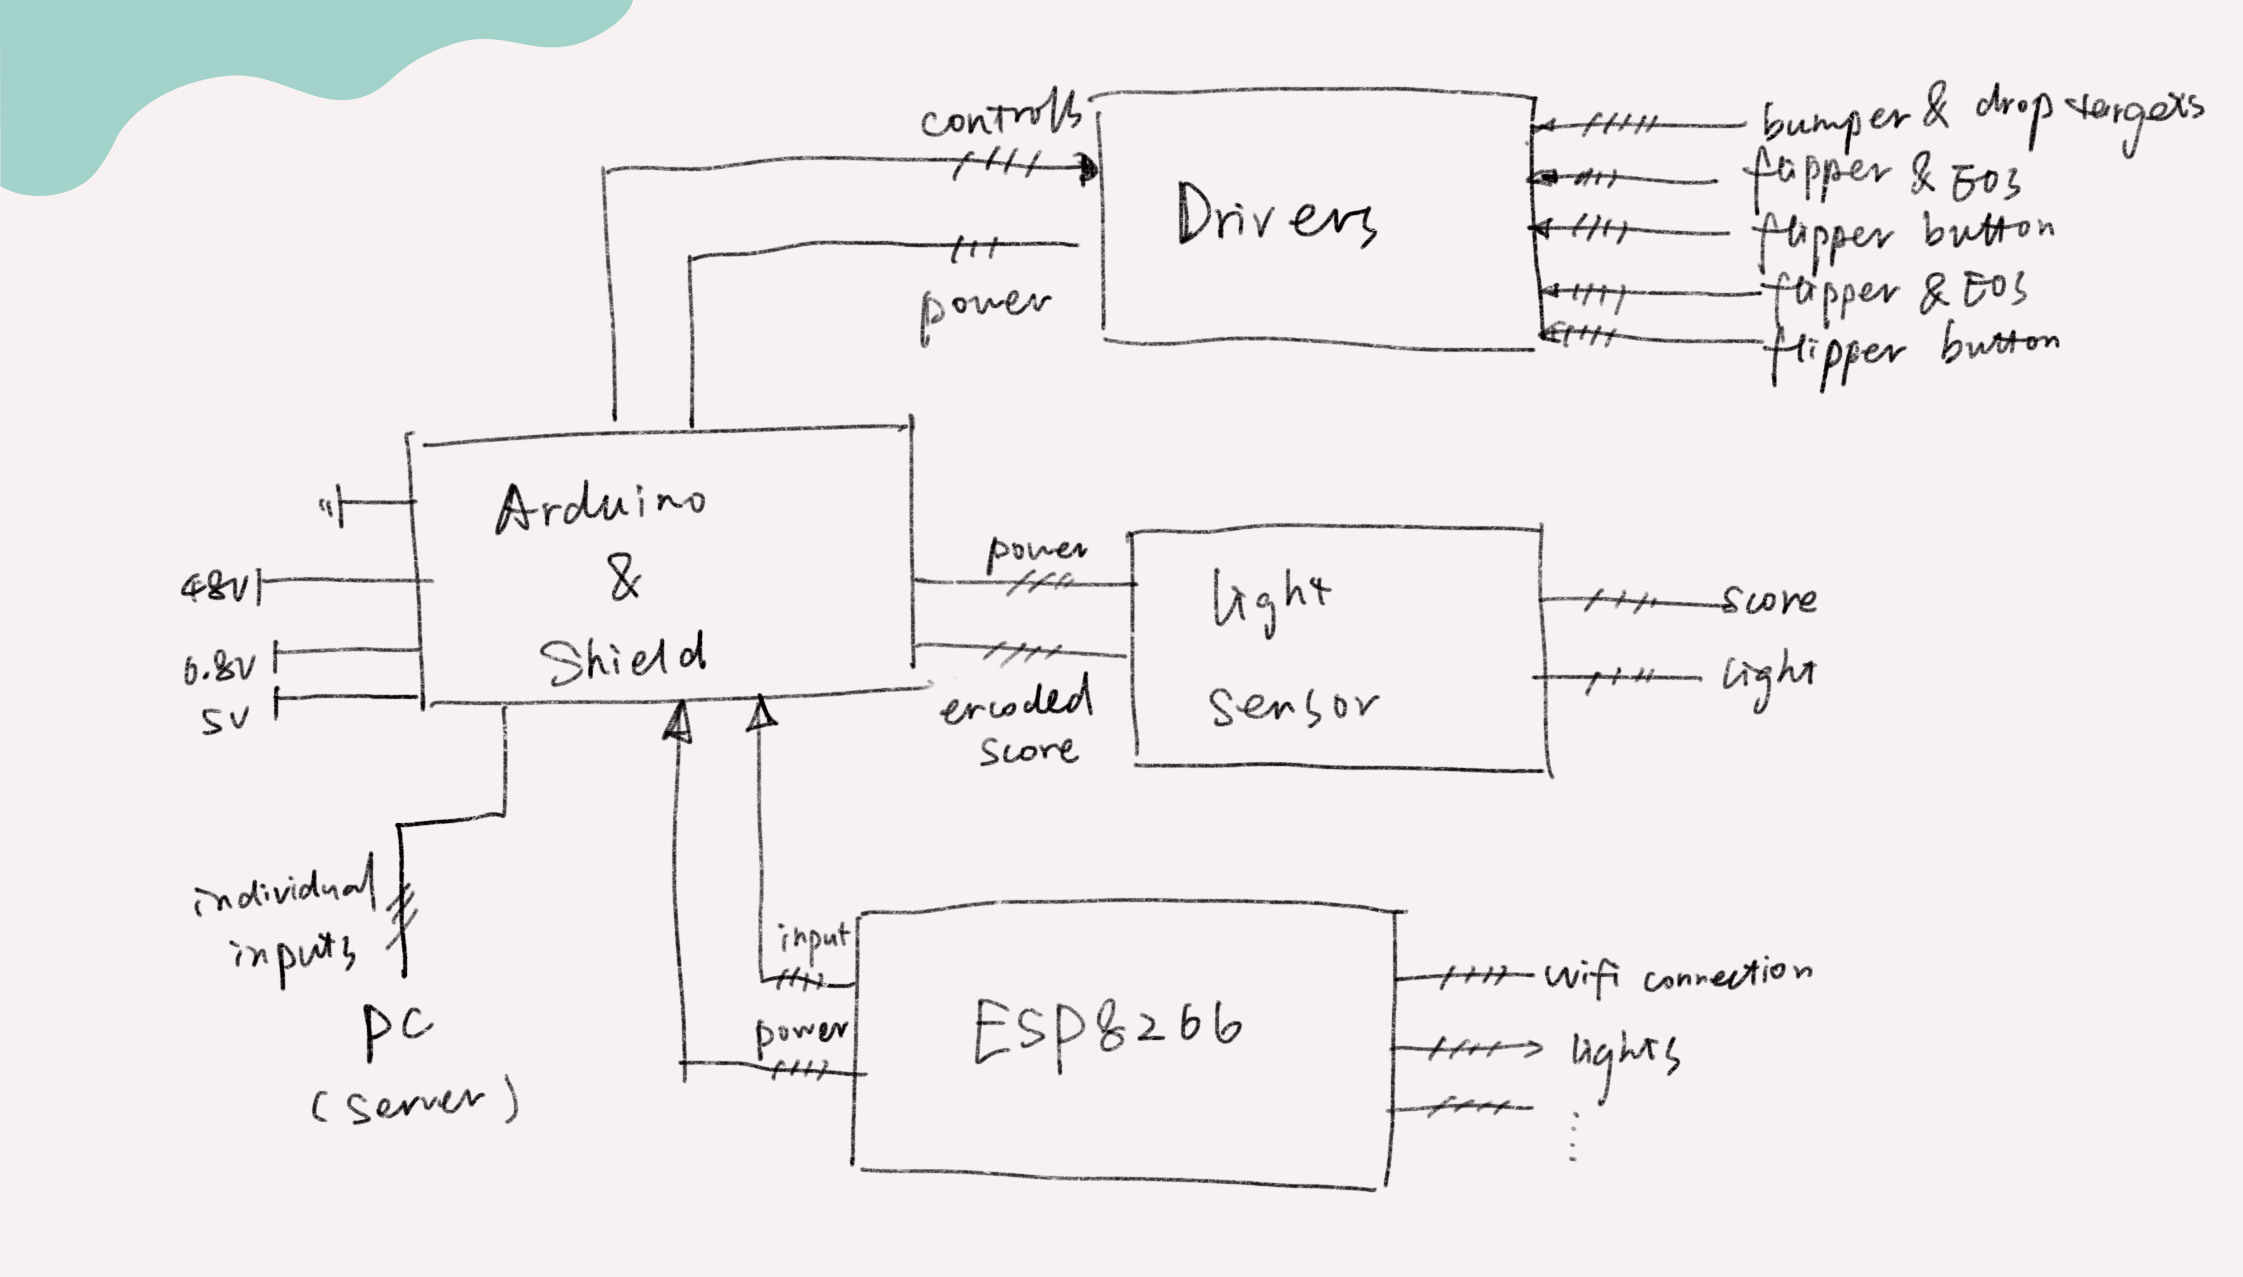 controls
bumper & drop targets
flipper & EOS
Drivers
flipper button
power
flipper & EOS
flipper button
Arduino
&
Shield
48V
6.8V
5V
power
encoded
score
light
sensor
score
light
individual
inputs
PC
(server)
input
power
ESP8266
wifi connection
lights